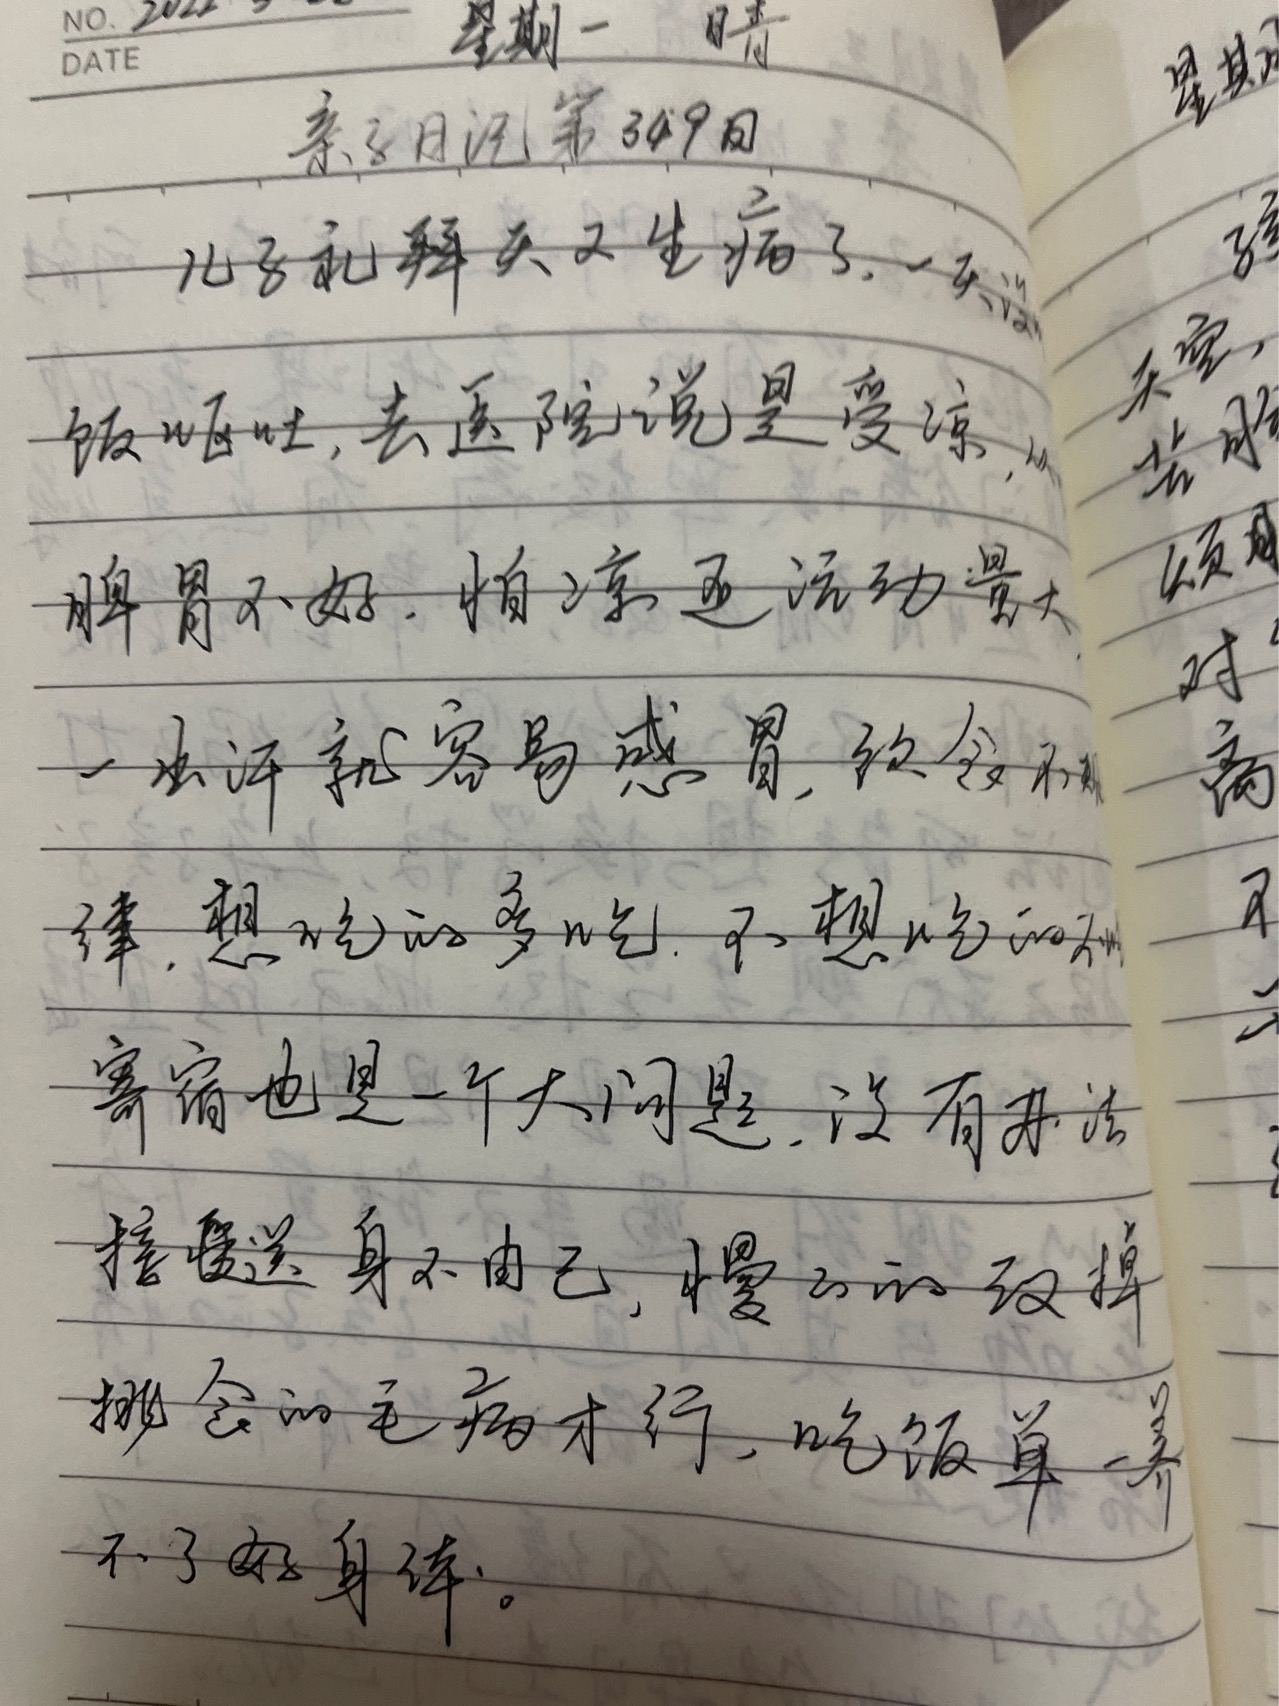 NO. 2022
DATE
星期一 晴
亲子日记第349日
儿子礼拜天又生病了.一天没
饭呕吐,去医院说是受凉,
脾胃不好.怕凉还运动量大.
一出汗就容易感冒,饮食不规
律.想吃的多吃.不想吃的不吃
寄宿也是一个大问题.没有办法
接送身不由己,慢々的改掉
挑食的毛病才行,吃饭单一养
不了好身体。
星期
天空,
苦
颂
对
高
不